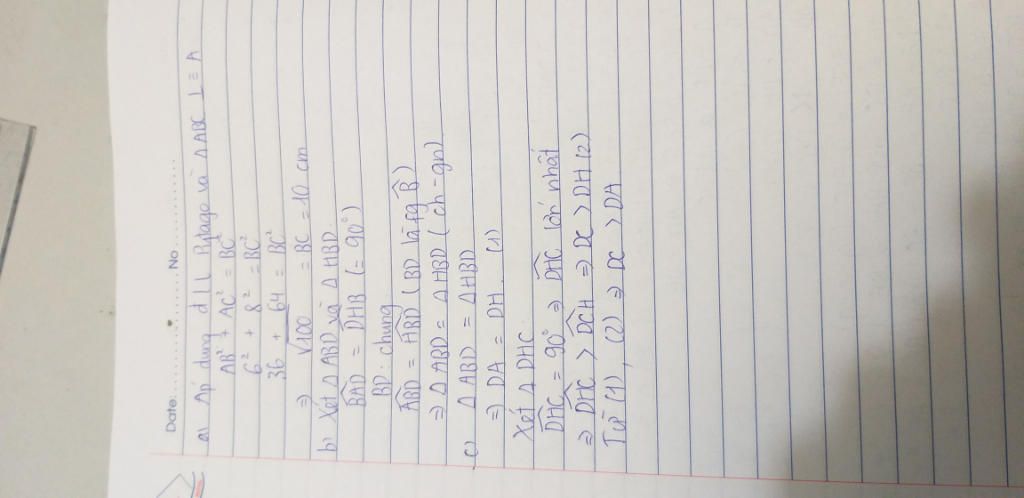 Date: ............... No ...............
a) Áp dụng đ L L Pytago và Δ ABC ⊥ = A
AB² + AC² = BC²
6² + 8² = BC²
36 + 64 = BC²
⇒ √100 = BC = 10 cm
b) Xét Δ ABD và Δ HBD
BAD = DHB (= 90°)
BD: chung
ABD = HBD (BD là fg B)
⇒ Δ ABD = Δ HBD (ch - gn)
c) Δ ABD = Δ HBD
⇒ DA = DH (1)
Xét Δ DHC
DHC = 90° ⇒ DHC lớn nhất
⇒ DHC > DCH ⇒ DC > DH (2)
Từ (1), (2) ⇒ DC > DA